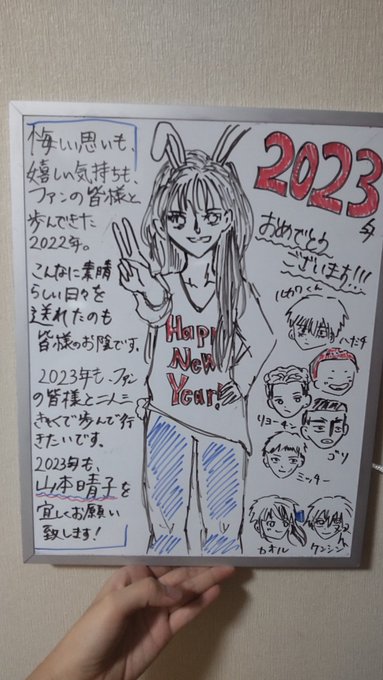 悔しい思いも、
嬉しい気持ちも、
ファンの皆様と
歩んできた
2022年。
こんなに素晴
らしい日々を
送れたのも
皆様のお陰です。
2023年も、ファン
の皆様と二人三
きゃくで歩んで行
きたいです。
2023年も、
山本晴子を
宜しくお願い
致します!
2023年
おめでとう
ございます!!!
Happy
New
Year!
ルカワくん
ハナチ
リョーチン
ゴリ
ミッチー
カオル
ケンシン